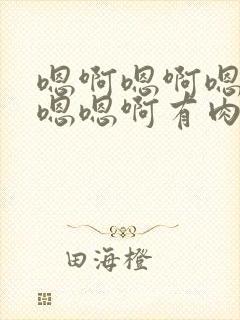 嗯啊嗯啊嗯
嗯嗯啊有肉
田海橙